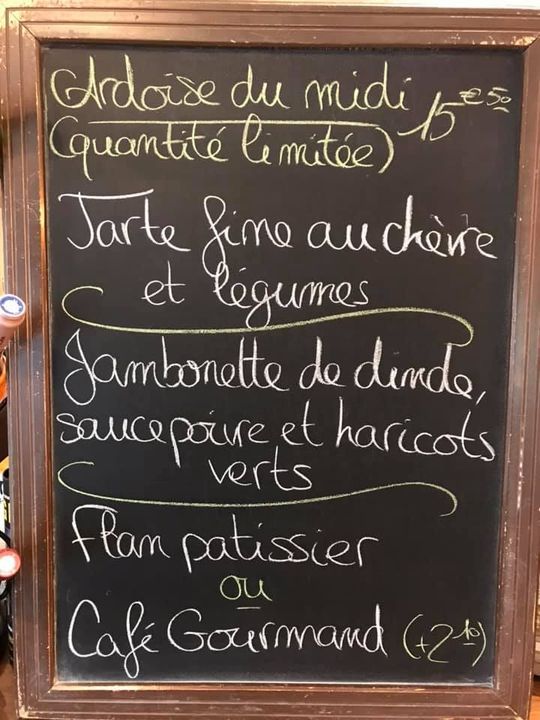 Ardoise du midi 15€50
(quantité limitée)
Tarte fine au chèvre
et légumes
Jambonette de dinde,
sauce poivre et haricots
verts
Flan patissier
ou
Café Gourmand (+2€10)